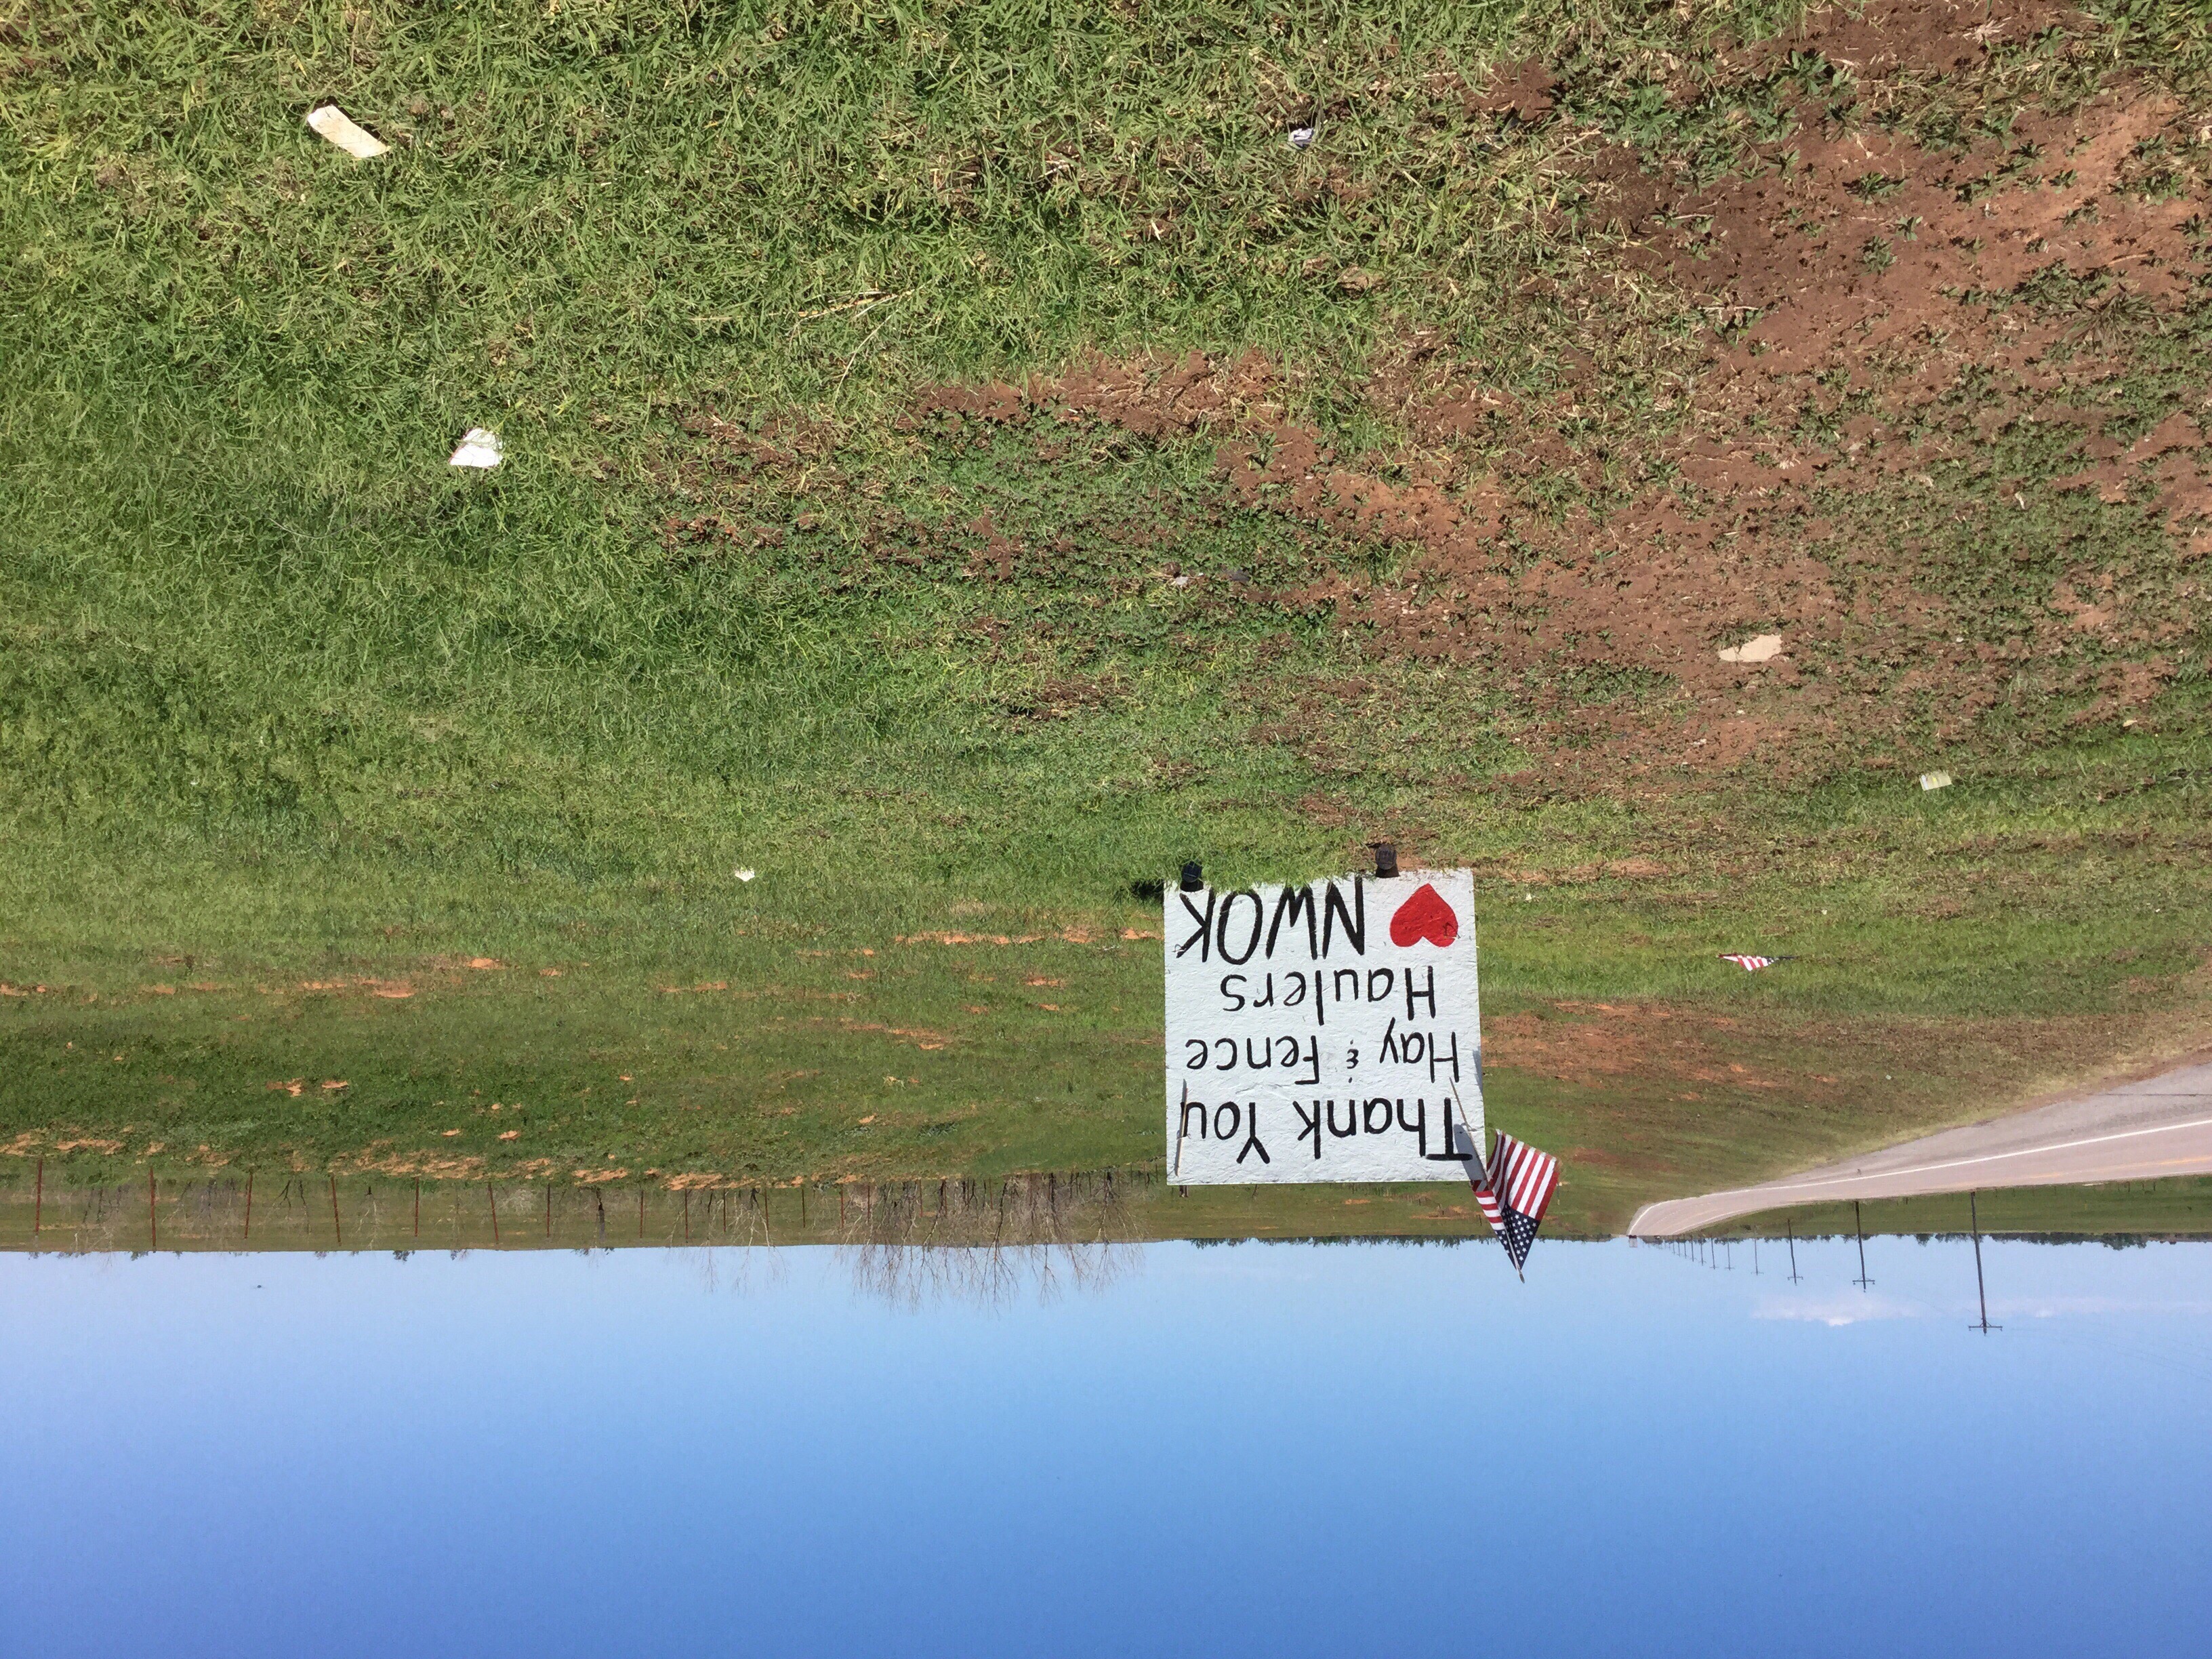 Thank You
Hay & Fence
Haulers
♥ NWOK